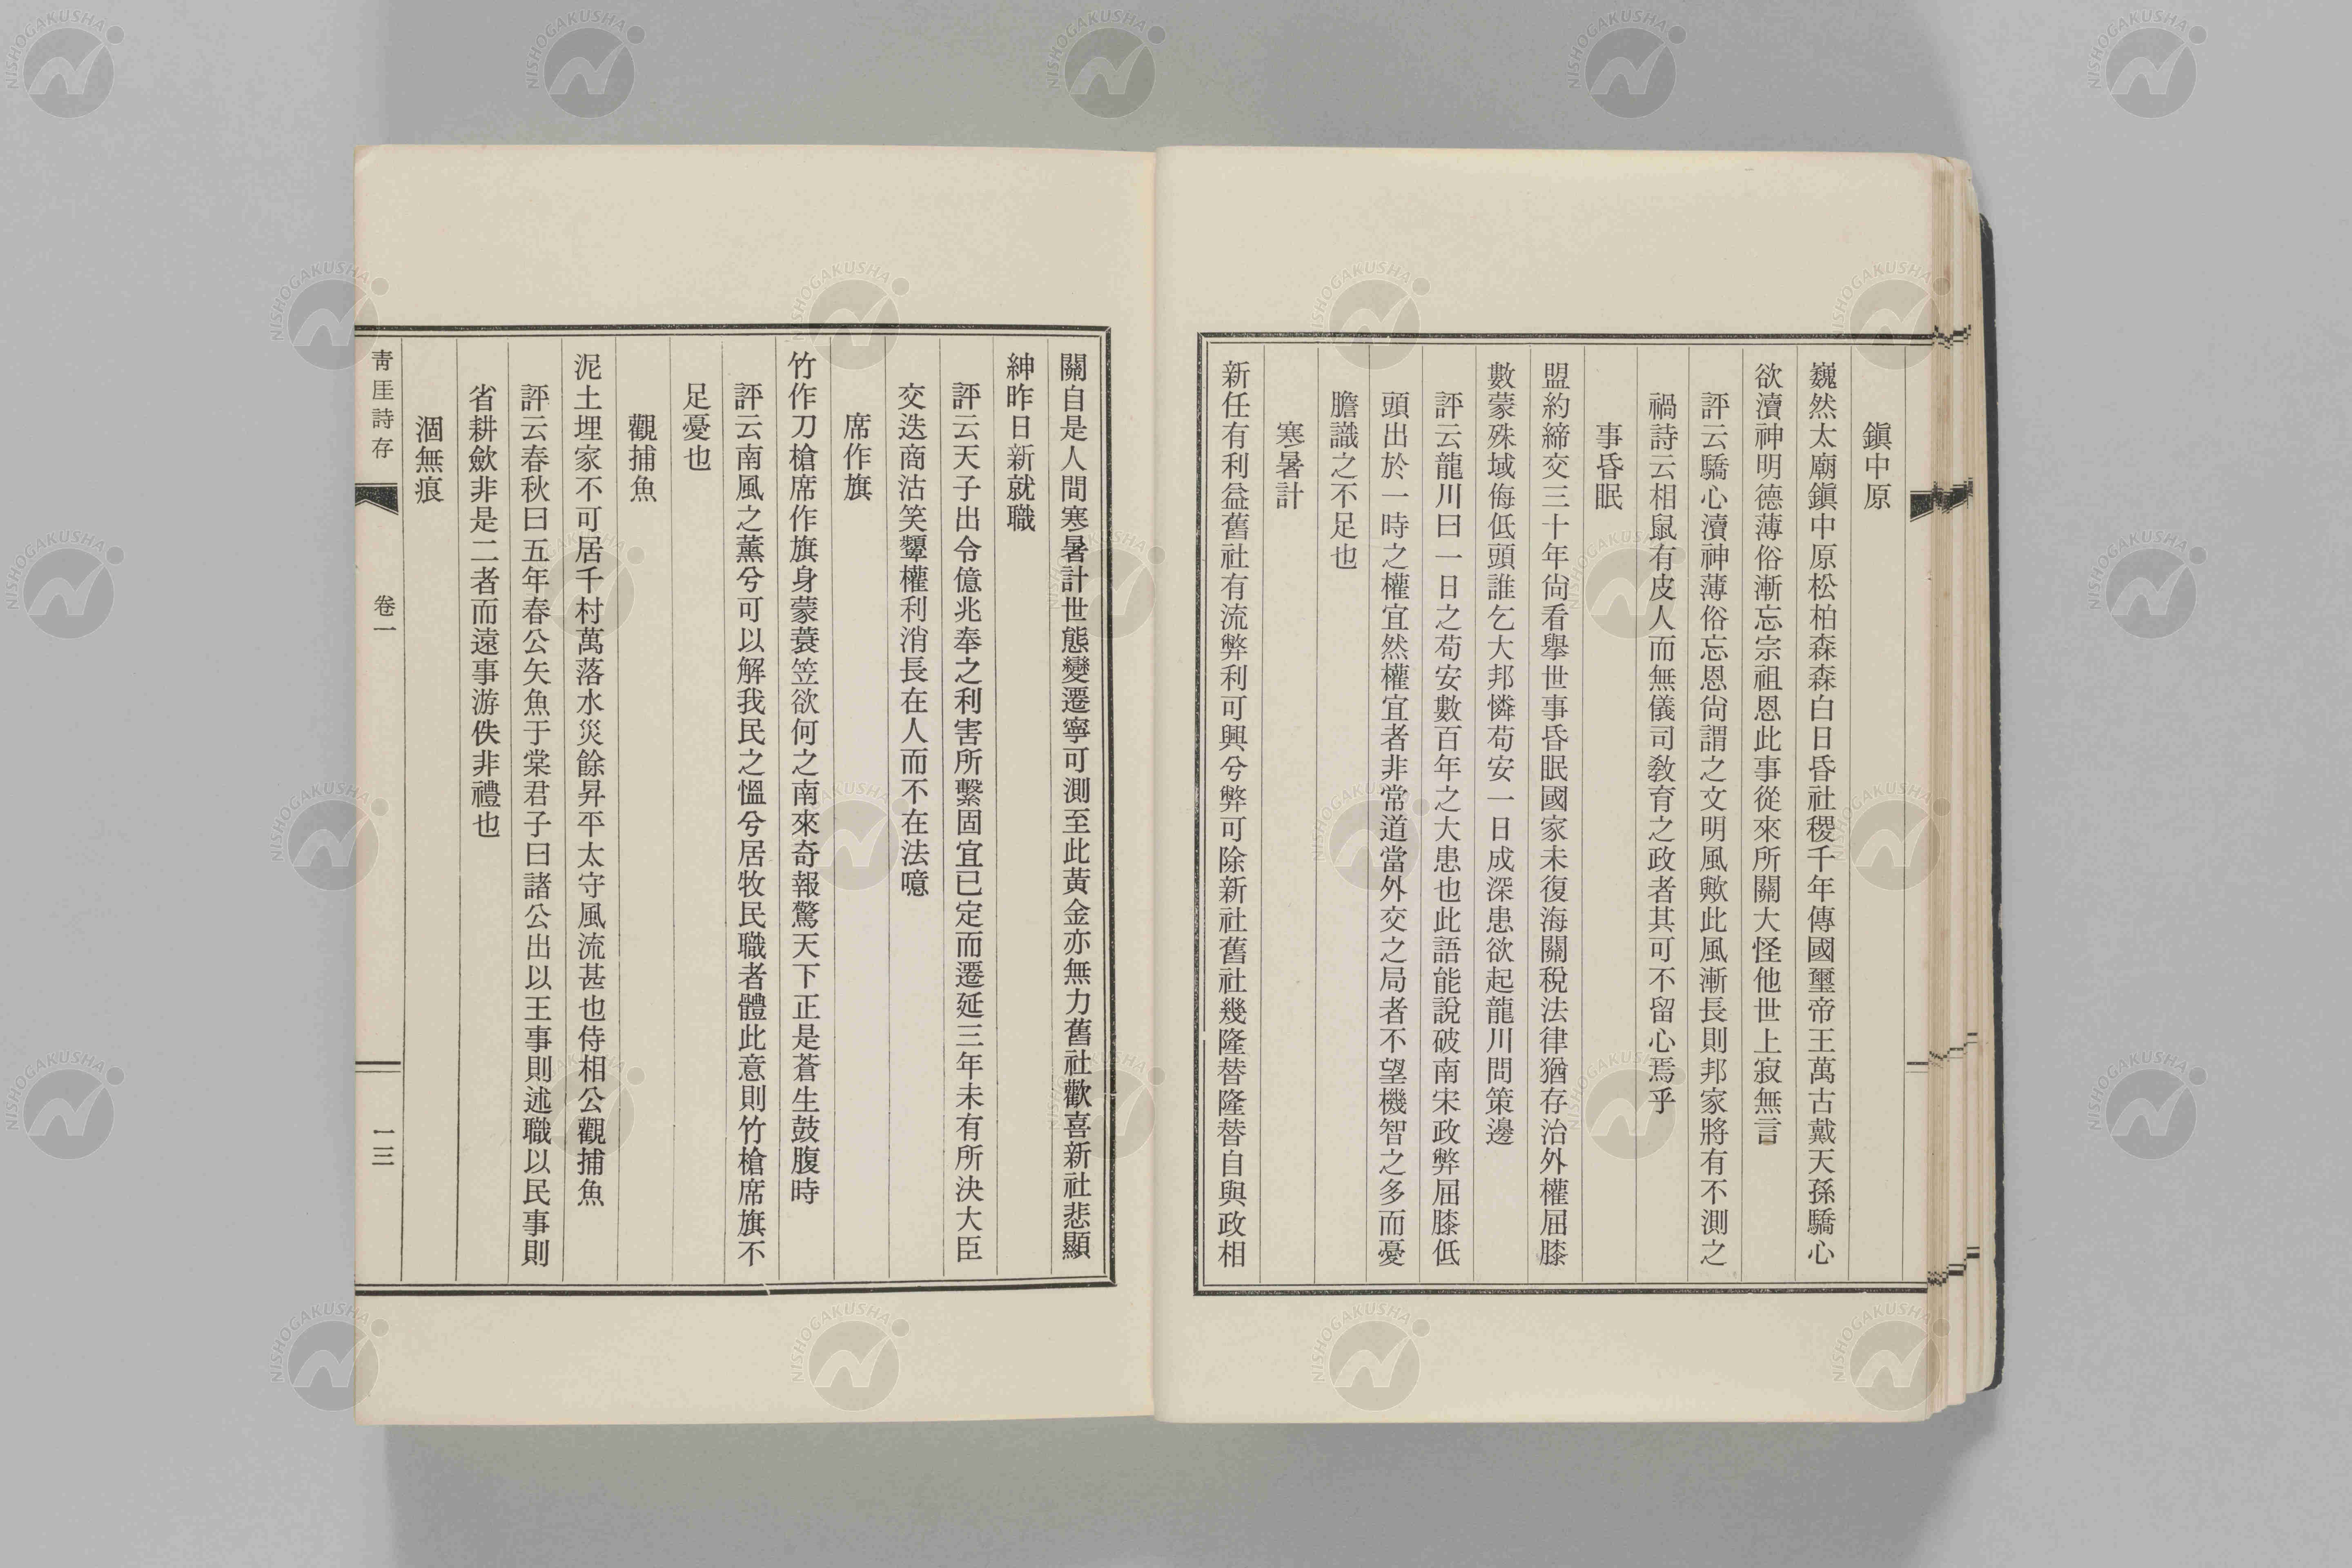 鎭中原
巍然太廟鎭中原松柏森森白日昏社稷千年傳國璽帝王萬古戴天孫驕心
欲瀆神明德薄俗漸忘宗祖恩此事從來所關大怪他世上寂無言
評云驕心瀆神薄俗忘恩尙謂之文明風歟此風漸長則邦家將有不測之
禍詩云相鼠有皮人而無儀司敎育之政者其可不留心焉乎
事昏眠
盟約締交三十年尙看擧世事昏眠國家未復海關稅法律猶存治外權屈膝
數蒙殊域侮低頭誰乞大邦憐苟安一日成深患欲起龍川問策邊
評云龍川曰一日之苟安數百年之大患也此語能說破南宋政弊屈膝低
頭出於一時之權宜然權宜者非常道當外交之局者不望機智之多而憂
膽識之不足也
寒暑計
新任有利益舊社有流弊利可興兮弊可除新社舊社幾隆替隆替自與政相
關自是人間寒暑計世態變遷寧可測至此黃金亦無力舊社歡喜新社悲顯
紳昨日新就職
評云天子出令億兆奉之利害所繫固宜已定而遷延三年未有所決大臣
交迭商沽笑顰權利消長在人而不在法噫
席作旗
竹作刀槍席作旗身蒙蓑笠欲何之南來奇報驚天下正是蒼生鼓腹時
評云南風之薰兮可以解我民之慍兮居牧民職者體此意則竹槍席旗不
足憂也
觀捕魚
泥土埋家不可居千村萬落水災餘昇平太守風流甚也侍相公觀捕魚
評云春秋曰五年春公矢魚于棠君子曰諸公出以王事則述職以民事則
省耕斂非是二者而遠事游佚非禮也
涸無痕
靑厓詩存
卷一
一三
NISHOGAKUSHA